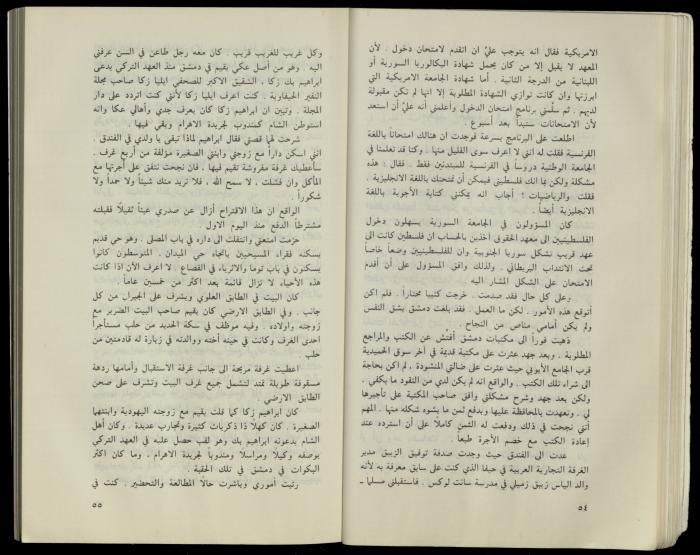 الاميركية فقال انه يتوجب عليّ ان اتقدم لامتحان دخول . لأن
المعهد لا يقبل إلا من كان يحمل شهادة البكالوريا السورية أو
اللبنانية من الدرجة الثانية . أما شهادة الجامعة الاميركية التي
ابرزتها وان كانت توازي الشهادة المطلوبة إلا انها لم تكن مقبولة
لديهم . ثم سلّمني برنامج امتحان الدخول وأعلمني أنه عليّ أن استعد
لأن الامتحانات ستبدأ بعد أسبوع .
اطلعت على البرنامج بسرعة فوجدت ان هنالك امتحاناً باللغة
الفرنسية فقلت له انني لا اعرف سوى القليل منها . وكنا قد تعلمنا في
الجامعة الوطنية دروساً في الفرنسية للمبتدئين فقط . فقال : هذه
مشكلة ولكن بما انك فلسطيني فيمكن أن نمتحنك باللغة الانجليزية .
فقلت والرياضيات ؟ أجاب انه يمكنني كتابة الأجوبة باللغة
الانجليزية أيضاً .
كان المسؤولون في الجامعة السورية يسهلون دخول
الفلسطينيين الى معهد الحقوق آخذين بالحساب ان فلسطين كانت الى
عهد قريب تشكل سوريا الجنوبية وان للفلسطينيين وضعاً خاصاً
تحت الانتداب البريطاني . ولذلك وافق المسؤول على أن أقدم
الامتحان على الشكل المشار اليه .
وعلى كل حال فقد صدمت . خرجت كئيباً محتارا . فلم اكن
أتوقع هذه الأمور . لكن ما العمل . فقد بلغت دمشق بشق النفس
ولم يكن أمامي مناص من النجاح .
ذهبت فوراً الى مكتبات دمشق أفتش عن الكتب والمراجع
المطلوبة . وبعد جهد عثرت على مكتبة قديمة في آخر سوق الحميدية
قرب الجامع الأموي حيث عثرت على ضالتي المنشودة ، لم اكن بحاجة
الى شراء تلك الكتب . والواقع انه لم يكن لدي من النقود ما يكفي .
ولكن بعد جهد وشرح مشكلتي وافق صاحب المكتبة على تأجيرها
لي . وتعهدت بالمحافظة عليها وبدفع ثمن ما يشوه شكله منها . المهم
أنني نجحت في ذلك ودفعت له الثمن كاملاً على أن استرده عند
إعادة الكتب مع خصم الأجرة طبعاً .
عدت الى الفندق حيث وجدت صدفة توفيق الزيبق مدير
الغرفة التجارية العربية في حيفا الذي كنت على سابق معرفة به لأنه
والد الياس زيبق زميلي في مدرسة سانت لوكس . فاستقبلني مسلماً –
٥٤
وكل غريب للغريب قريب . كان معه رجل طاعن في السن عرفني
اليه . وهو من أصل عكي يقيم في دمشق منذ العهد التركي يدعى
ابراهيم بك زكا ، الشقيق الاكبر للصحفي ايليا زكا صاحب مجلة
النفير الحيفاوية . كنت اعرف ايليا زكا لأنني كنت اتردد على دار
المجلة . وتبين ان ابراهيم زكا كان يعرف جدي وأهالي عكا وانه
استوطن الشام كمندوب لجريدة الاهرام وبقي فيها .
شرحت لهما قصتي فقال ابراهيم لماذا تبقى يا ولدي في الفندق .
انني اسكن داراً مع زوجتي وابنتي الصغيرة مؤلفة من أربع غرف .
سأعطيك غرفة مفروشة تقيم فيها ، فان نجحت نتفق على أجرتها مع
المأكل وان فشلت ، لا سمح الله ، فلا نريد منك شيئاً ولا حمداً ولا
شكوراً .
الواقع ان هذا الاقتراح أزال عن صدري عبئاً ثقيلاً فقبلته
مشترطاً الدفع منذ اليوم الاول .
حزمت أمتعتي وانتقلت الى داره في باب المصلى . وهو حي قديم
يسكنه فقراء المسيحيين باتجاه حي الميدان . المتوسطون كانوا
يسكنون في باب توما والاثرياء في القصاع . لا اعرف الآن اذا كانت
هذه الأحياء لا تزال قائمة بعد اكثر من خمسين عاماً .
كان البيت في الطابق العلوي ويشرف على الجيران من كل
جانب . وفي الطابق الارضي كان يقيم صاحب البيت الضرير مع
زوجته واولاده . وفيه موظف في سكة الحديد من حلب مستأجراً
احدى الغرف وكانت في حينه أخته ووالدته في زيارة له قادمتين من
حلب .
اعطيت غرفة مريحة الى جانب غرفة الاستقبال وأمامها ردهة
مسقوفة طويلة تمتد لتشمل جميع غرف البيت وتشرف على صحن
الطابق الارضي .
كان ابراهيم زكا كما قلت يقيم مع زوجته اليهودية وابنتهما
الصغيرة . كان كهلاً ذا ذكريات كثيرة وتجارب عديدة . وكان أهل
الشام يدعونه ابراهيم بك وهو لقب حصل عليه في العهد التركي
بوصفه وكيلاً ومراسلا ومندوباً لجريدة الاهرام . وما كان اكثر
البكوات في دمشق في تلك الحقبة .
رتبت أموري وباشرت حالاً المطالعة والتحضير . كنت في
٥٥